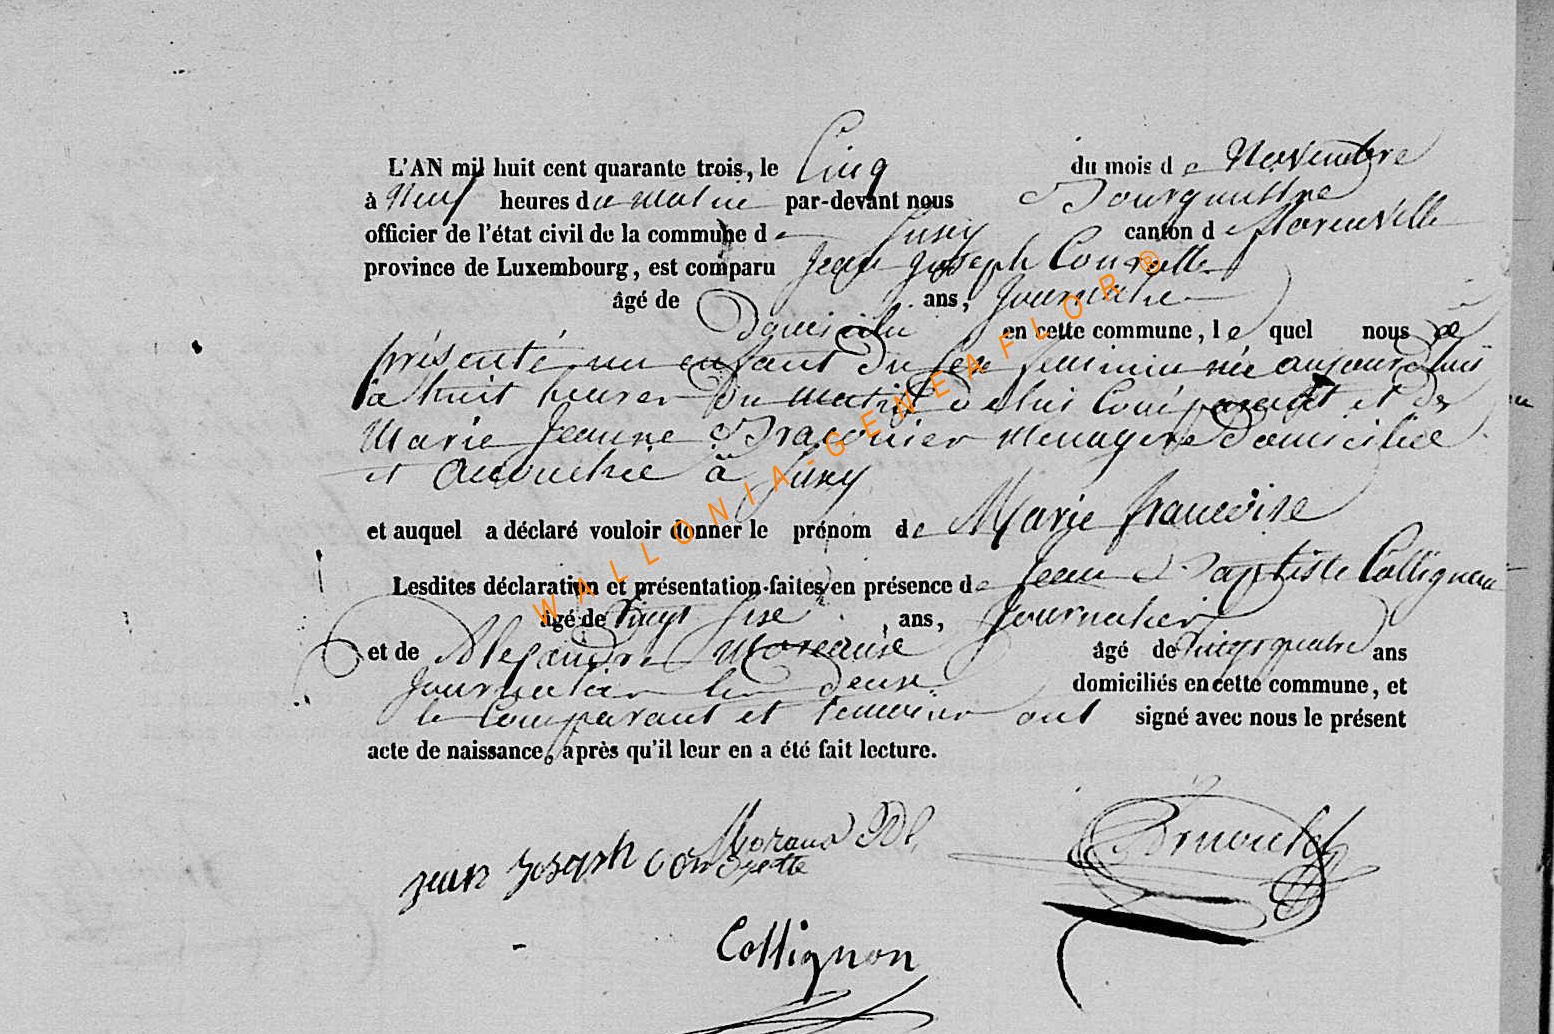 L'AN mil huit cent quarante trois, le Cinq du mois de Novembre
à Neuf heures du matin par-devant nous Bourguemstre
officier de l'état civil de la commune de Suxy canton de florenville
province de Luxembourg, est comparu Jean Joseph
âgé de ans, Journalier
Domicilié en cette commune, lequel nous a
présenté un enfant du sexe feminin née aujourd'hui
à huit heures du matin de lui Comparant et de
Marie Jeanne Braconier Menagere domiciliée
et accouchée à Suxy
et auquel a déclaré vouloir donner le prénom de Marie francoise
Lesdites déclaration et présentation faites en présence de Jean Baptiste Collignon
âgé de vingt sixe ans, Journalier
et de Alexandre Moreause âgé de vingt quatre ans
Journalier les deux domiciliés en cette commune, et
le Comparant et temoins ont signé avec nous le présent
acte de naissance, après qu'il leur en a été fait lecture.
Moraux
jean joseph
Collignon
WALLONIA-GENEAFLOR®